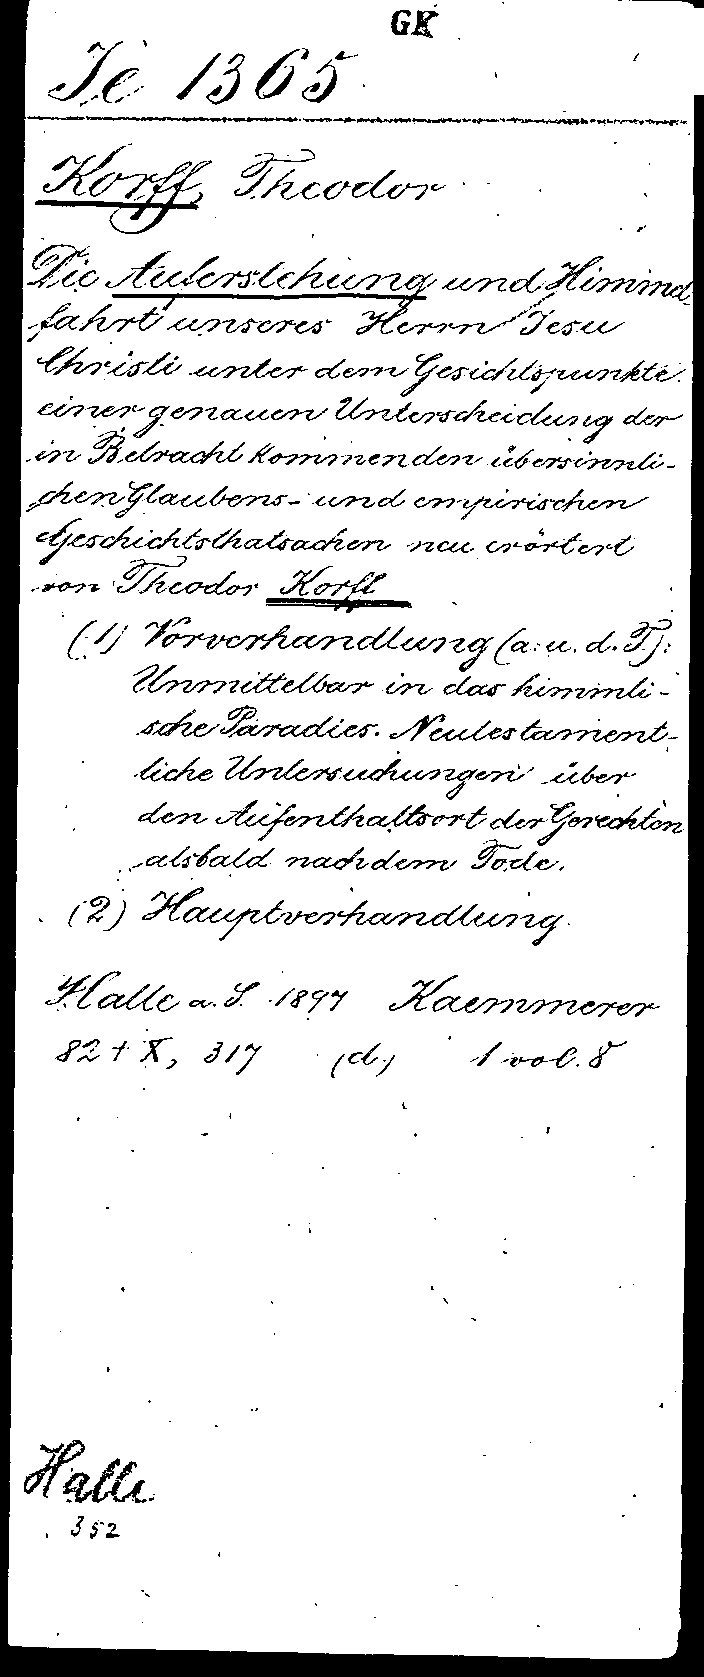 GK
Ie 1365
Korff, Theodor
Die Auferstehung und Himmel-
fahrt unseres Herrn Jesu
Christi unter dem Gesichtspunkte
einer genauen Unterscheidung der
in Betracht kommenden übersinnli-
chen Glaubens- und empirischen
Geschichtsthatsachen neu erörtert
von Theodor Korff
(1) Vorverhandlung (a. u. d. T.):
Unmittelbar in das himmli-
sche Paradies. Neutestament-
liche Untersuchungen über
den Aufenthaltsort der Gerechten
alsbald nach dem Tode.
(2) Hauptverhandlung.
Halle a. S. 1897 Kaemmerer
82 + X, 317 (d.) 1 vol. 8
Halle
352